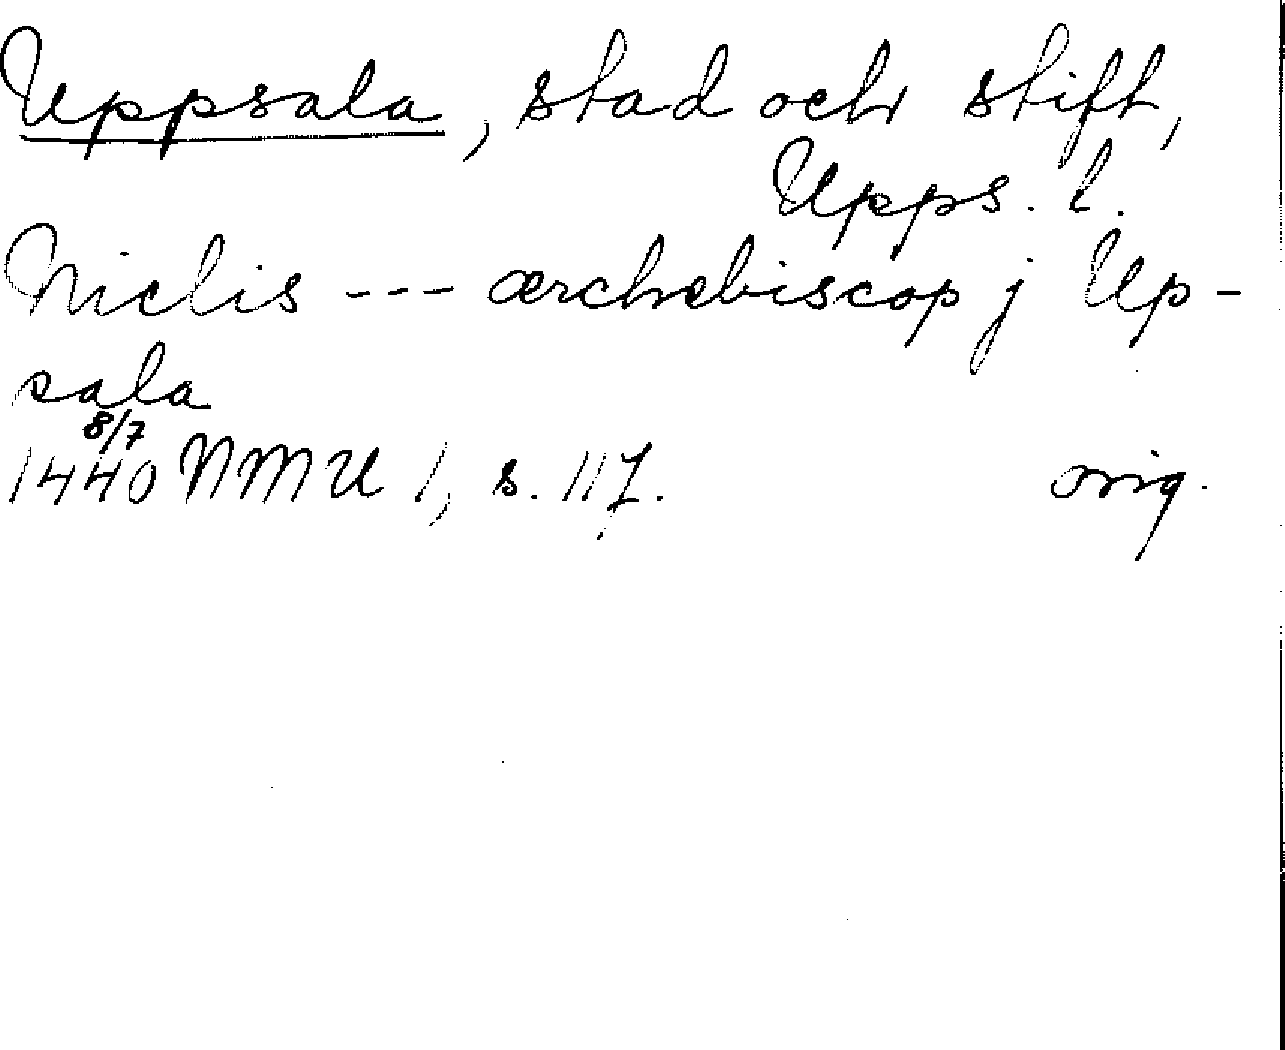 Uppsala, stad och stift,
Upps. l.
Niclis --- ærchebiscop j Up-
sala
8/7
1440 NMU 1, s. 117. orig.